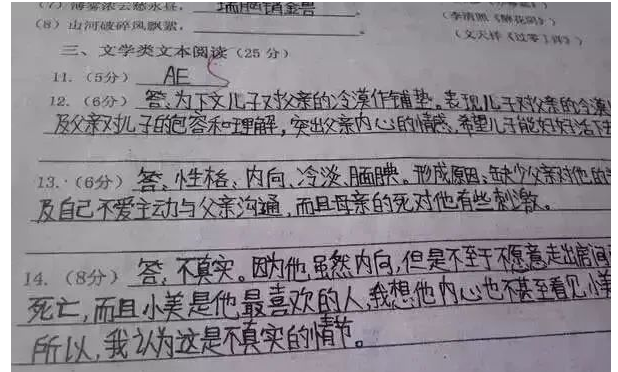 (7) 薄雾浓云愁永昼， 瑞脑销金兽 。（李清照《醉花阴》）
(8) 山河破碎风飘絮， 。（文天祥《过零丁洋》）
三、文学类文本阅读（25 分）
11.（5分） AE
12.（6分） 答、为下文儿子对父亲的冷漠作铺垫。表现儿子对父亲的冷漠
及父亲对儿子的包容和理解，突出父亲内心的情感，希望儿子能好好活下去
13.（6分） 答、性格、内向、冷淡、腼腆。形成原因、缺少父亲对他的
及自己不爱主动与父亲沟通，而且母亲的死对他有些刺激。
14.（8分） 答，不真实。因为他虽然内向，但是不至于不愿意走出房间
死亡，而且小美是他最喜欢的人，我想他内心也不甚至看见小美
所以，我认为这是不真实的情节。